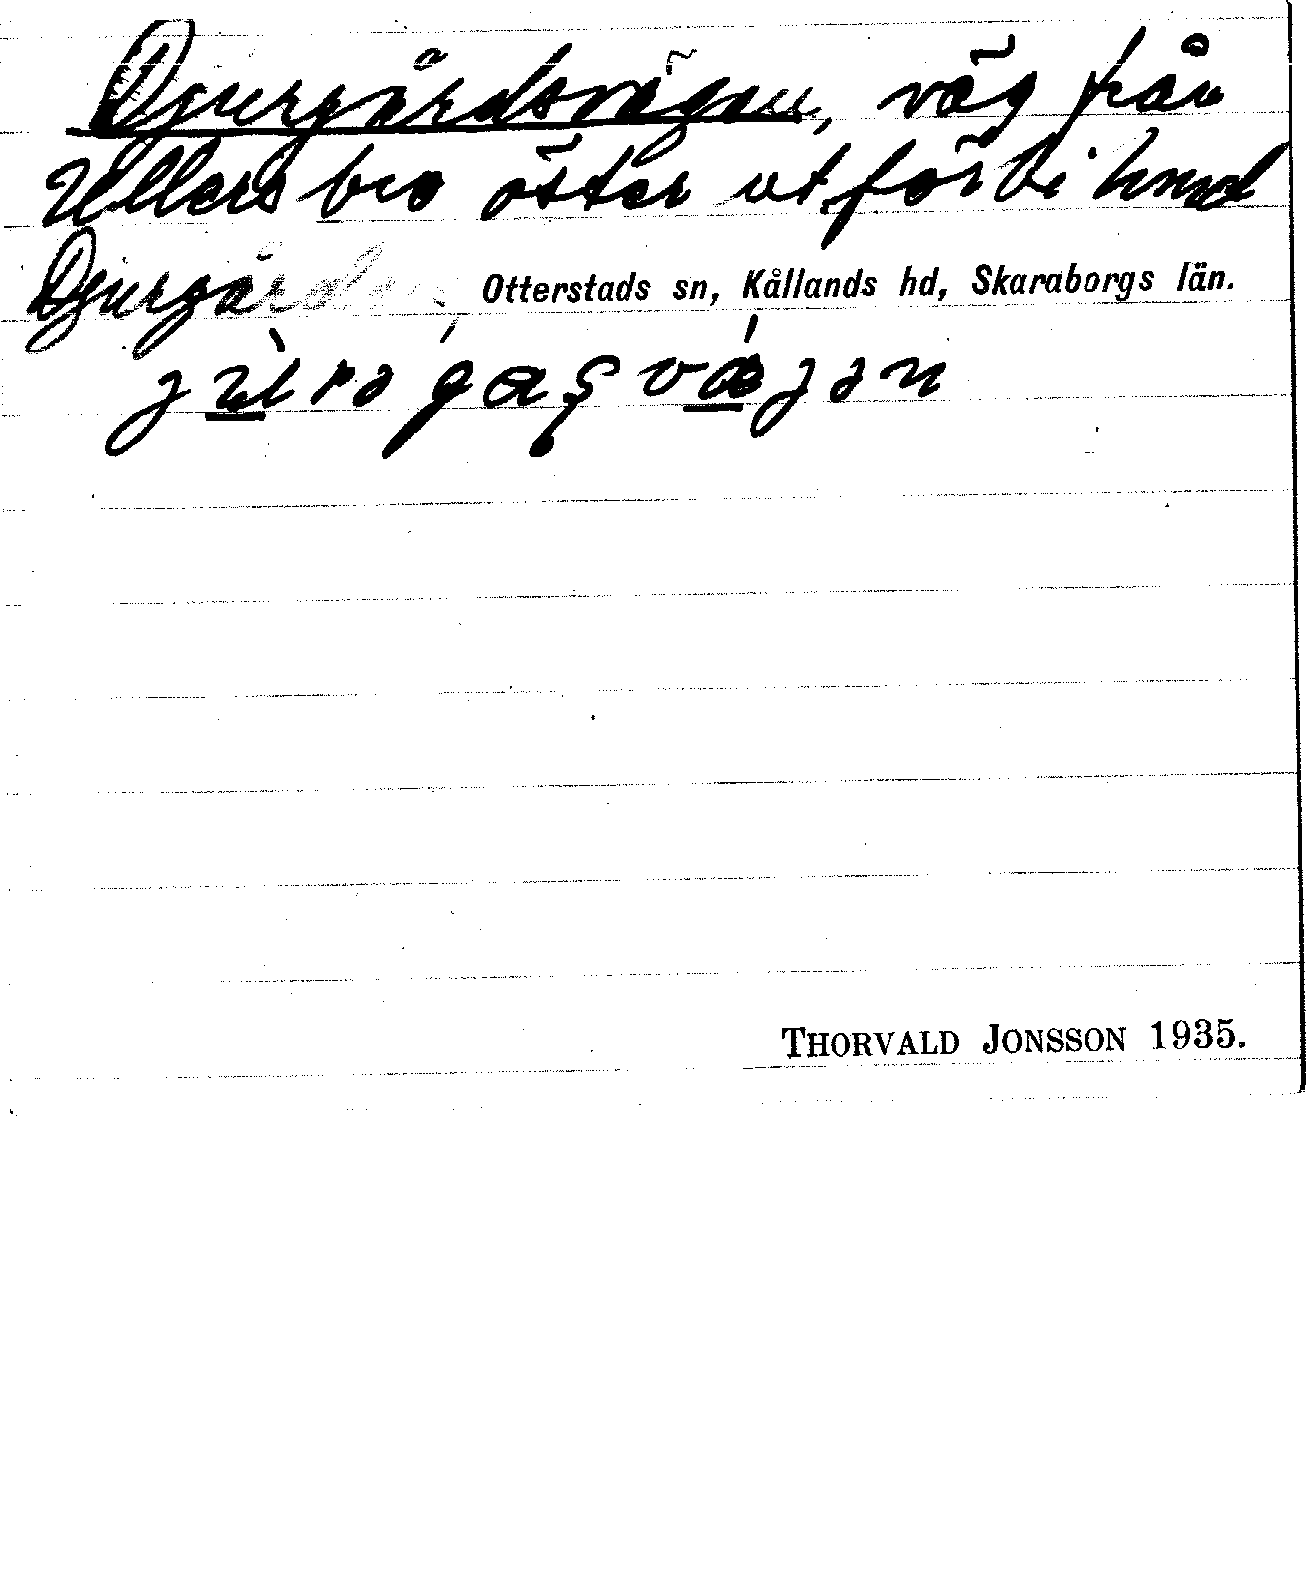 Djurgårdsvägen, väg från
Ullersbro öster ut förbi hmd
Djurgården, Otterstads sn, Kållands hd, Skaraborgs län.
THORVALD JONSSON 1935.